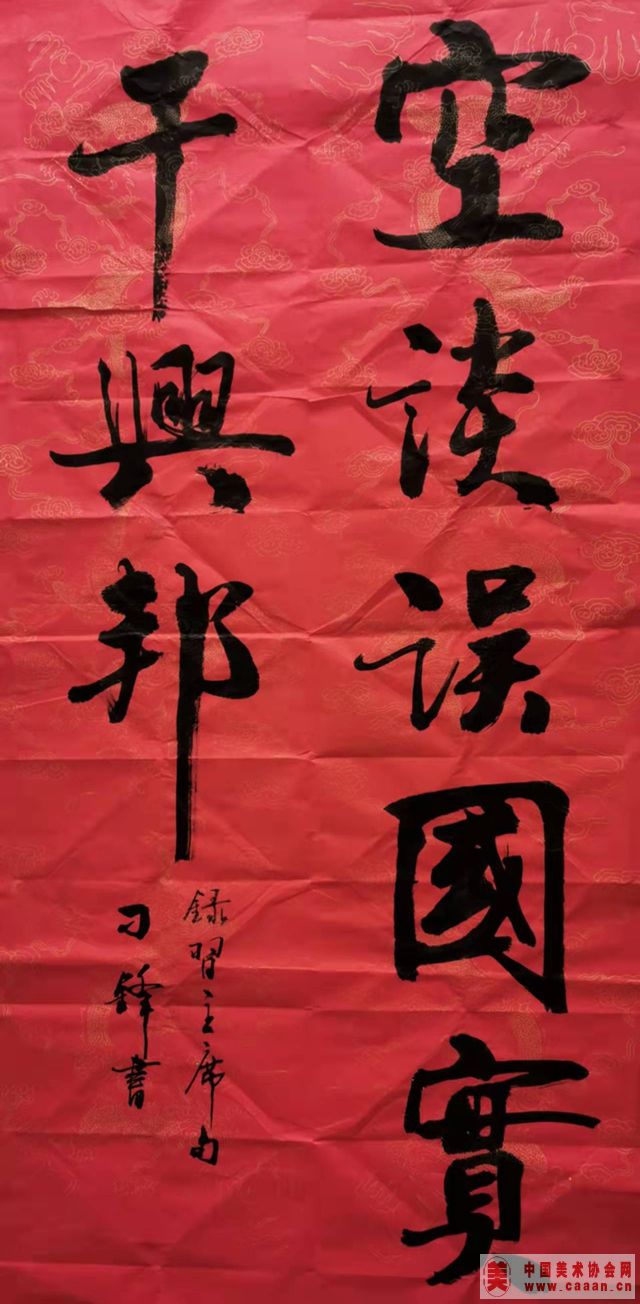 空談误國實
干興邦
錄習主席句
刁鋒書
美 中国美术协会网
www.caaan.cn